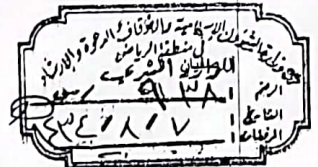 وزارة الشئون الإسلامية والأوقاف والدعوة والإرشاد
في منطقة الرياض
الرقم ٩٣٨
التاريخ ٧ / ٨ / ٤٣٤
المرفقات